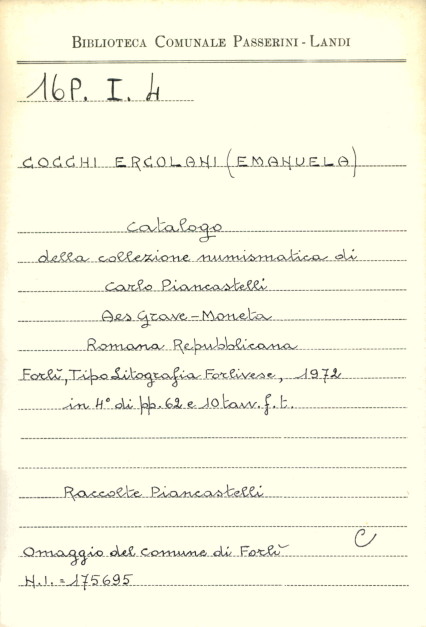 BIBLIOTECA COMUNALE PASSERINI - LANDI
16P. I. 4
COCCHI ERCOLANI (EMANUELA)
Catalogo
della collezione numismatica di
Carlo Piancastelli
Aes Grave - Moneta
Romana Repubblicana
Forlì, Tipo Litografia Forlivese, 1972
in 4° di pp. 62 e 10 tavv. f. t.
Raccolte Piancastelli
C
Omaggio del Comune di Forlì
N.I. = 175695